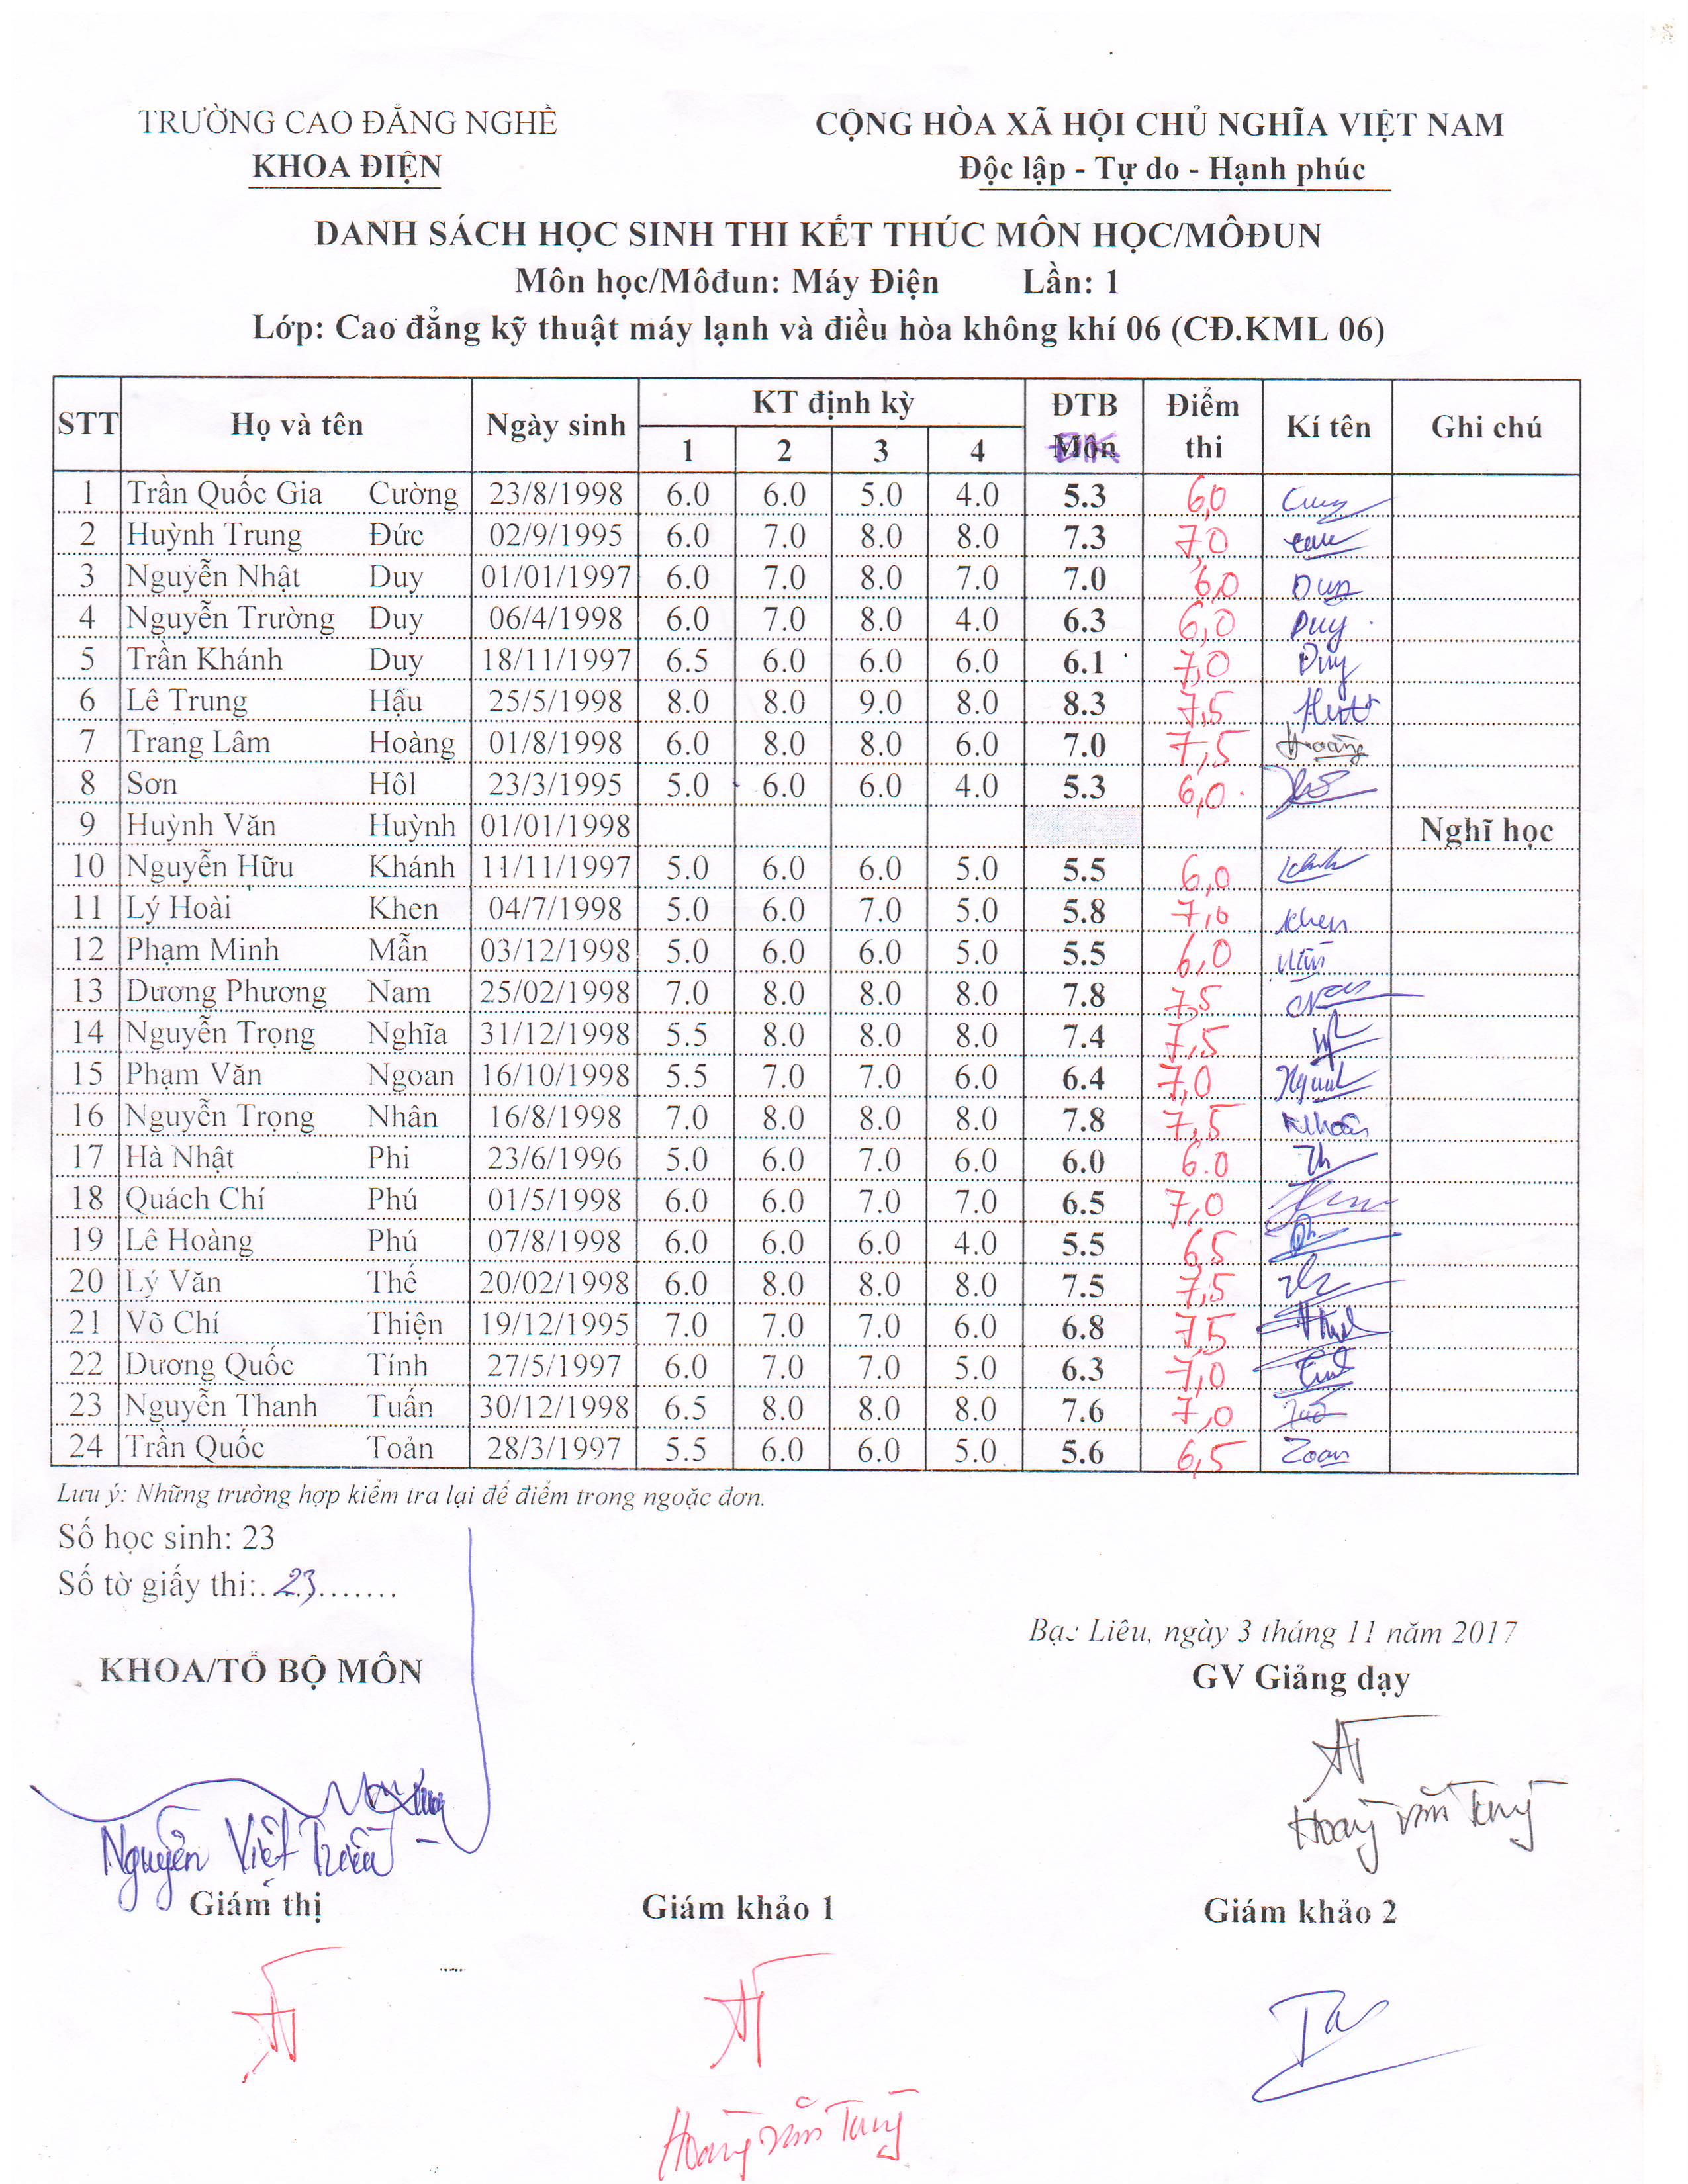 TRƯỜNG CAO ĐẲNG NGHỀ
KHOA ĐIỆN
CỘNG HÒA XÃ HỘI CHỦ NGHĨA VIỆT NAM
Độc lập - Tự do - Hạnh phúc
DANH SÁCH HỌC SINH THI KẾT THÚC MÔN HỌC/MÔĐUN
Môn học/Môđun: Máy Điện Lần: 1
Lớp: Cao đẳng kỹ thuật máy lạnh và điều hòa không khí 06 (CĐ.KML 06)
STT Họ và tên Ngày sinh KT định kỳ ĐTB Môn Điểm thi Kí tên Ghi chú
1 2 3 4
1 Trần Quốc Gia Cường 23/8/1998 6.0 6.0 5.0 4.0 5.3 6,0
2 Huỳnh Trung Đức 02/9/1995 6.0 7.0 8.0 8.0 7.3 7,0
3 Nguyễn Nhật Duy 01/01/1997 6.0 7.0 8.0 7.0 7.0 6,0 Duy
4 Nguyễn Trường Duy 06/4/1998 6.0 7.0 8.0 4.0 6.3 6,0 Duy
5 Trần Khánh Duy 18/11/1997 6.5 6.0 6.0 6.0 6.1 7,0 Duy
6 Lê Trung Hậu 25/5/1998 8.0 8.0 9.0 8.0 8.3 7,5
7 Trang Lâm Hoàng 01/8/1998 6.0 8.0 8.0 6.0 7.0 7,5 Hoàng
8 Sơn Hôl 23/3/1995 5.0 6.0 6.0 4.0 5.3 6,0
9 Huỳnh Văn Huỳnh 01/01/1998 Nghĩ học
10 Nguyễn Hữu Khánh 11/11/1997 5.0 6.0 6.0 5.0 5.5 6,0
11 Lý Hoài Khen 04/7/1998 5.0 6.0 7.0 5.0 5.8 7,0 Khen
12 Phạm Minh Mẫn 03/12/1998 5.0 6.0 6.0 5.0 5.5 6,0
13 Dương Phương Nam 25/02/1998 7.0 8.0 8.0 8.0 7.8 7,5
14 Nguyễn Trọng Nghĩa 31/12/1998 5.5 8.0 8.0 8.0 7.4 7,5
15 Phạm Văn Ngoan 16/10/1998 5.5 7.0 7.0 6.0 6.4 7,0
16 Nguyễn Trọng Nhân 16/8/1998 7.0 8.0 8.0 8.0 7.8 7,5 Nhân
17 Hà Nhật Phi 23/6/1996 5.0 6.0 7.0 6.0 6.0 6.0
18 Quách Chí Phú 01/5/1998 6.0 6.0 7.0 7.0 6.5 7,0
19 Lê Hoàng Phú 07/8/1998 6.0 6.0 6.0 4.0 5.5 6,5
20 Lý Văn Thế 20/02/1998 6.0 8.0 8.0 8.0 7.5 7,5
21 Võ Chí Thiện 19/12/1995 7.0 7.0 7.0 6.0 6.8 7,5
22 Dương Quốc Tính 27/5/1997 6.0 7.0 7.0 5.0 6.3 7,0
23 Nguyễn Thanh Tuấn 30/12/1998 6.5 8.0 8.0 8.0 7.6 7,0
24 Trần Quốc Toản 28/3/1997 5.5 6.0 6.0 5.0 5.6 6,5 Toan
Lưu ý: Những trường hợp kiểm tra lại để điểm trong ngoặc đơn.
Số học sinh: 23
Số tờ giấy thi:..23.......
Bạc Liêu, ngày 3 tháng 11 năm 2017
KHOA/TỔ BỘ MÔN
GV Giảng dạy
Nguyễn Việt Triều
Hoàng Văn Tung
Giám thị
Giám khảo 1
Giám khảo 2
Hoàng Văn Tung